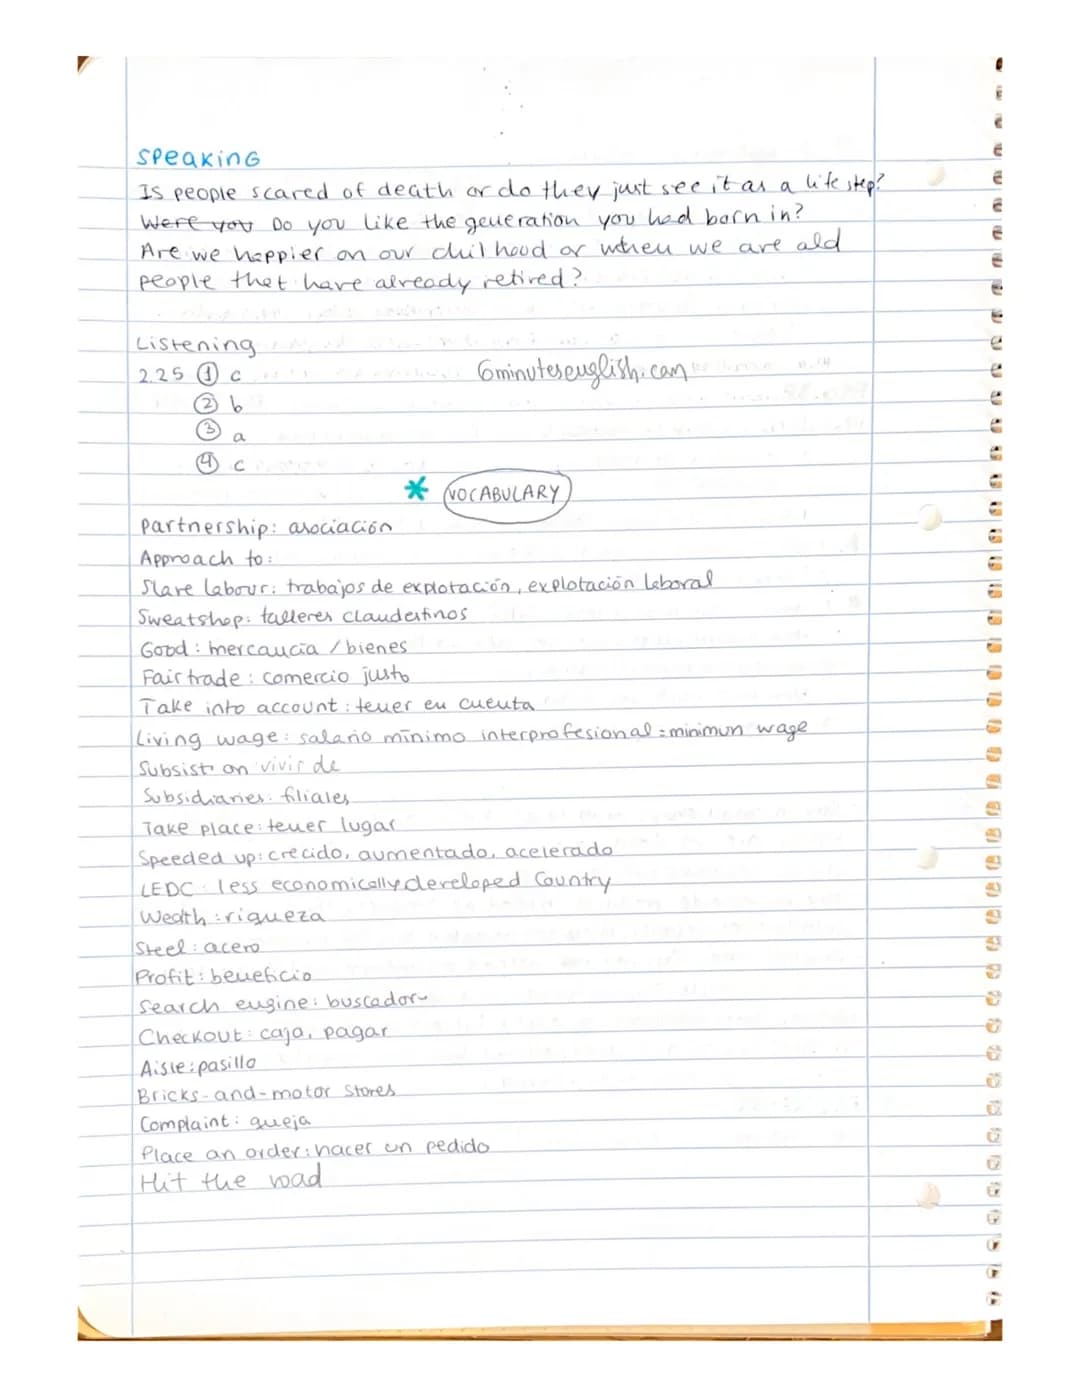 Speaking
Is people scared of death or do they just see it as a life step?
Were you Do you like the generation you had born in?
Are we happier on our chilhood or when we are old
people that have already retired?
Listening
2.25 ① c
6minutesenglish.com
② b
③ a
④ c
* VOCABULARY
Partnership: asociación
Approach to:
Slave labour: trabajos de explotación, explotación laboral
Sweatshop: talleres clandestinos
Good: mercancía / bienes
Fair trade: comercio justo
Take into account: tener en cuenta
Living wage: salario mínimo interprofesional = minimun wage
Subsist on vivir de
Subsidiaries: filiales
Take place: tener lugar
Speeded up: crecido, aumentado, acelerado
LEDC: less economically developed Country
Wealth: riqueza
Steel: acero
Profit: beneficio
Search engine: buscador
Checkout: caja, pagar
Aisle: pasillo
Bricks-and-motar stores
Complaint: queja
Place an order: hacer un pedido
Hit the road